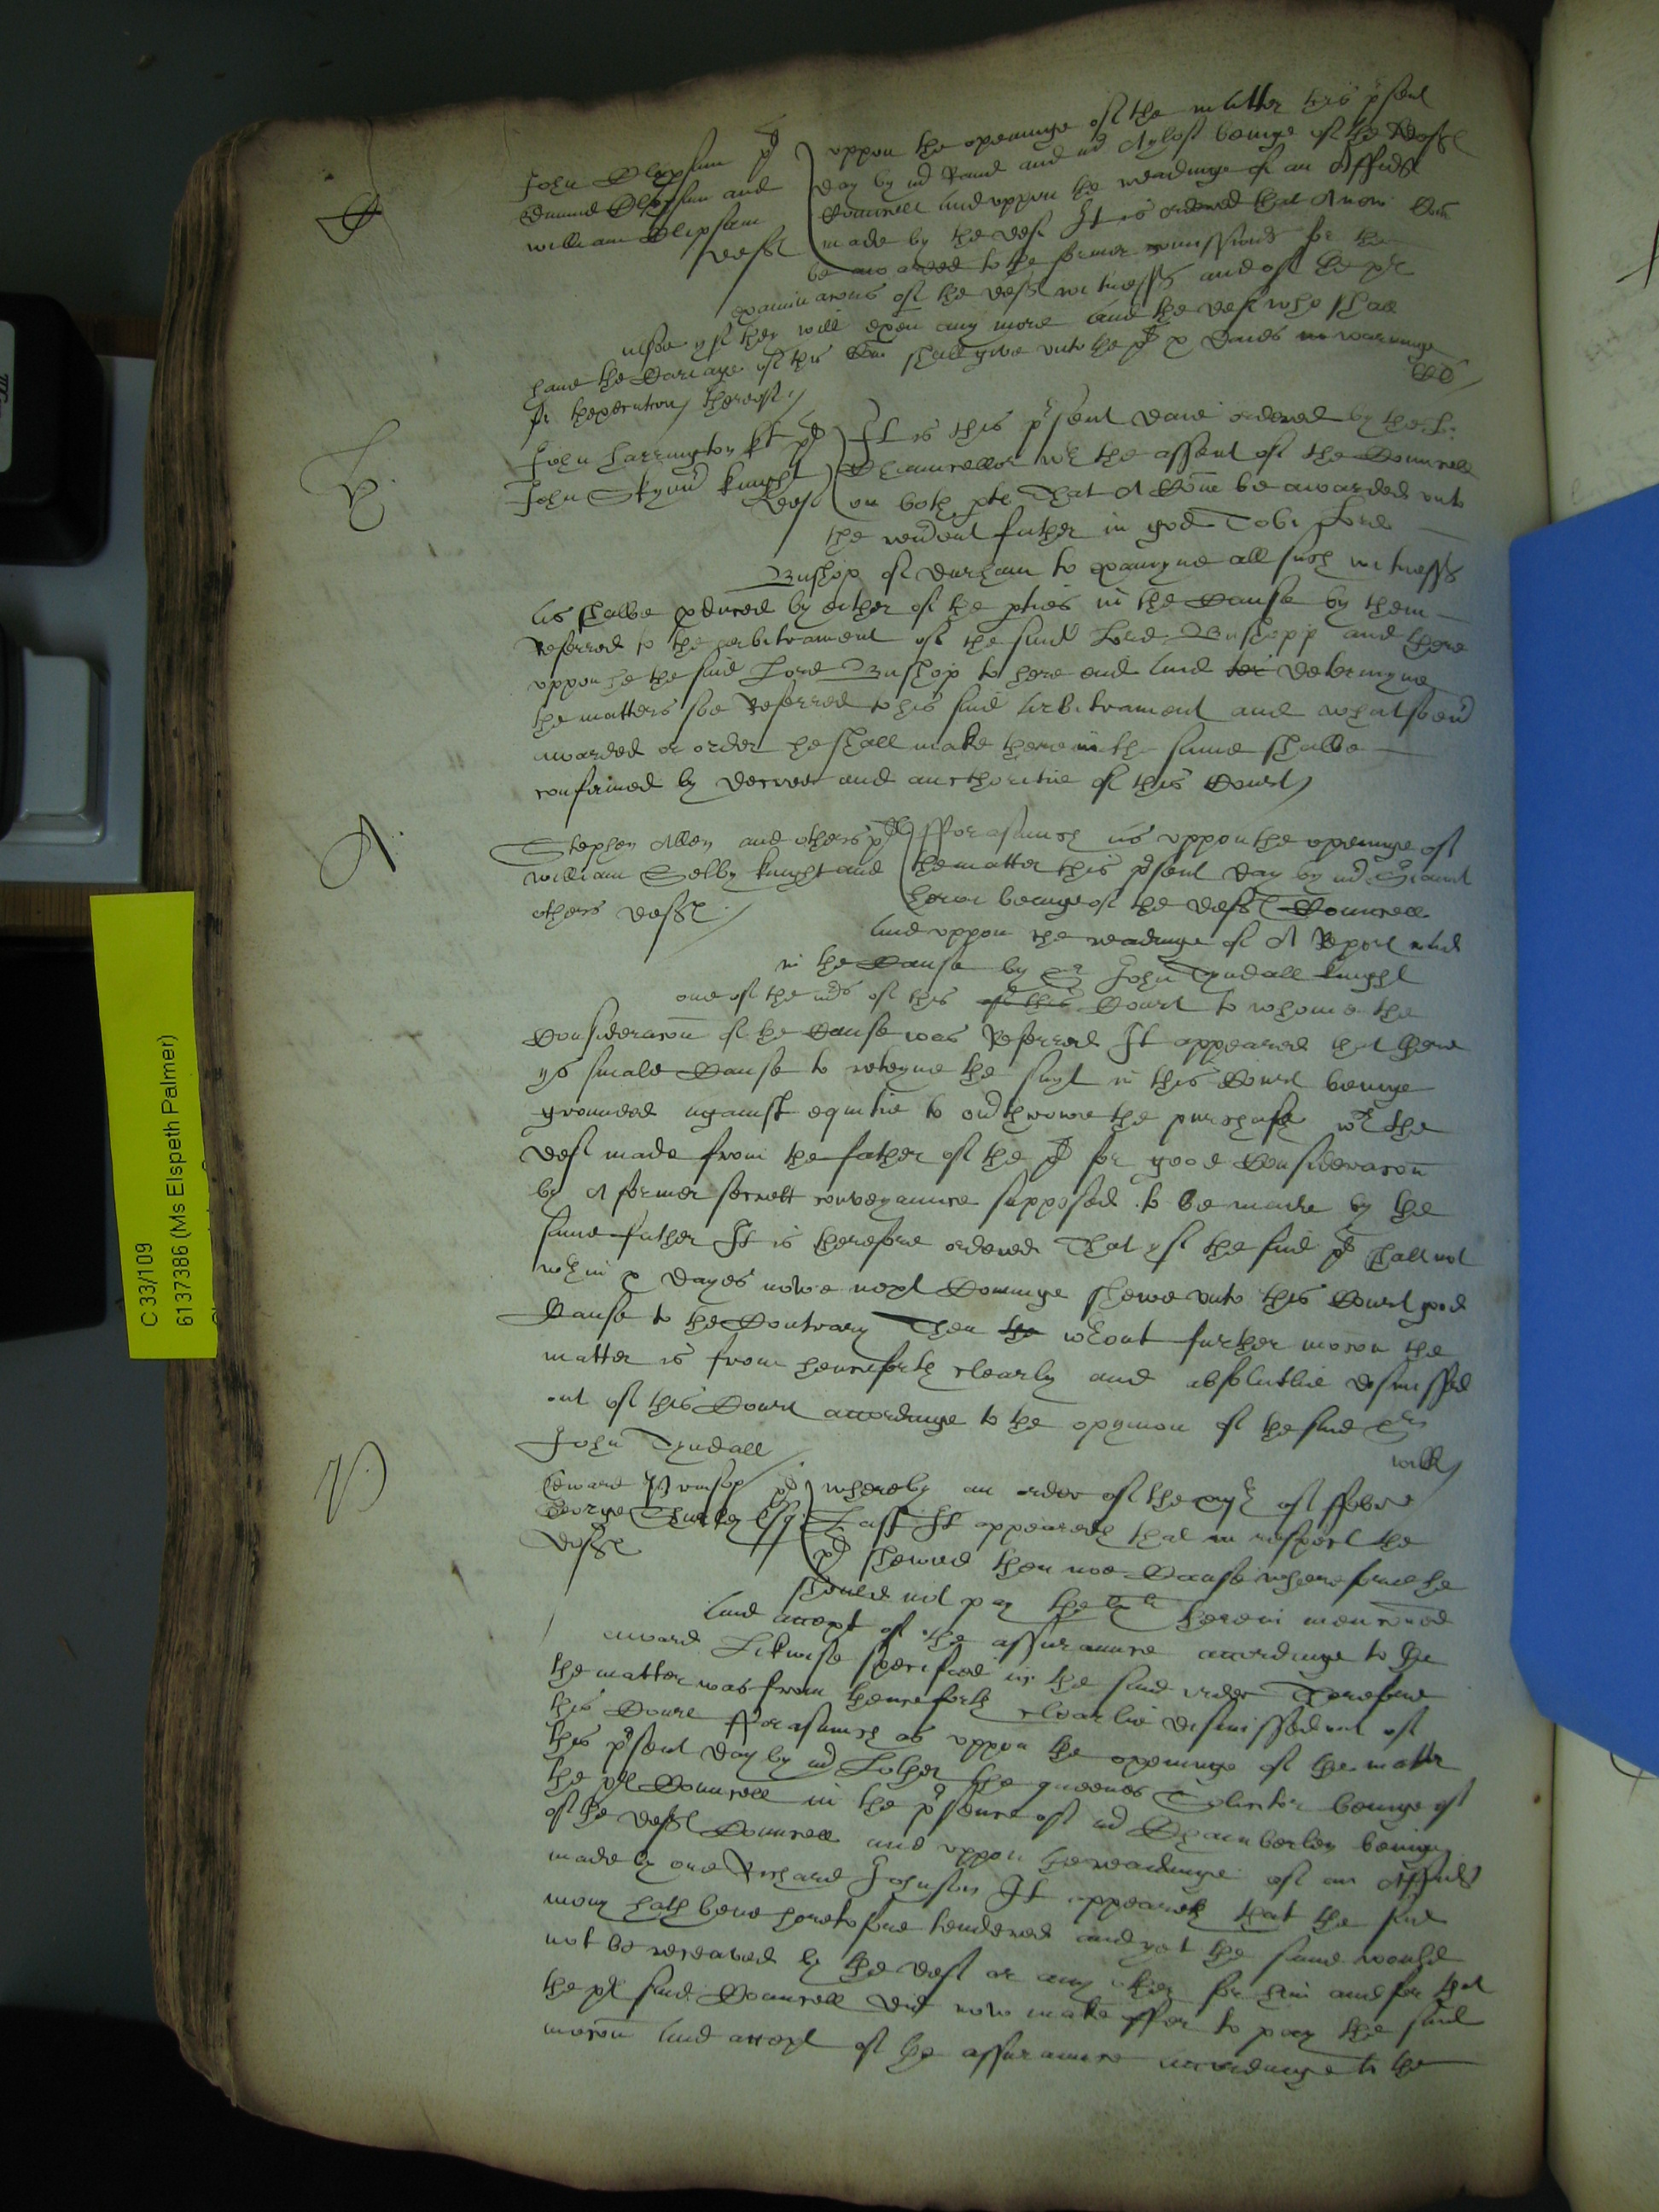 John Clipsam pl
Edmund Clipsam and
william Clipsam
defte
uppon the openinge of the matter this psent
day by mr and mr beinge of the defte
Councell and uppon the readinge of an Affidt
made by the deft It is ordered that A new Com
be awarded to the former comissioners for the
examinacons of the defte witnesses and of the ple
alsoe yf they will exen any more and the deft who shall
have the Cariage of the Com shall give unto the pl x daies warninge
for thexecution thereof
C
John Harrington kt pl
John Skynn knight
deft
It is this psent daie ordered by the L:
Chauncellor wth the assent of the Councell
on both ptes That A Com be awarded unto
the revend father in god Tobi Lord
Bushop of Durham to examyne all such witnesses
as shalbe pduced by either of the pties in the Cause by them
Referred to the arbitrament of the said Lord Bushopp and there
uppon he the said Lord Bushop to here end and determyne
the matters soe Referred to his said arbitrament and whatsoevr
awarded or order he shall make therein the same shalbe
confirmed by decree and aucthoritie of this Court
A
Stephen Allen and others pl
william Selby knight and
others defte
fforasmuch as uppon the openinge of
the matter this psent day by mr Siant
beinge of the defte Councell
and uppon the readinge of A Report made
in the Cause by Sr John Tyndall knight
one of the mrs of this of this Court to whome the
Consideracon of the Cause was Referred It appeared that there
ys smale Cause to reteyne the suyt in this Court beinge
grounded against equitie to ovrthrowe the purchase wch the
deft made from the father of the pl for good Consideracon
by A former secrett conveyaunce supposed to be made by the
same father It is therefore ordered That yf the said pl shall not
wthin x dayes nowe next Cominge shewe unto this Court good
Cause to the Contrary Then the wthout further mocon the
matter is from henceforth clearly and absolutlie dismissed
out of this Court accordinge to the opynion of the said Sr
John Tyndall
Edward pl
George esq
defte
whereby an order of the of ffebr
Last It appeareth that in respect the
pl shewed then noe Cause wherefore he
should not pay the therein menconed
and accept of the assuraunce accordinge to the
award Likwise specified in the said order Therefore
the matter was from thenceforth clearlie dismissed out of
this Court fforasmuch as uppon the openinge of the matter
this psent day by mr the queenes Soliciter beinge of
the ple Councell in the psence of mr Chamberlen beinge
of the defte Councell and uppon the readinge of an Affidt
made by one Richard Johnson It appeareth that the said
mony hath bene heretofore tendered and yet the same would
not be receaved by the deft or any other for him and for that
the ple said Councell did now make offer to pay the said
and accept of the assuraunce accordinge to the
C 33/109
6137386 (Ms Elspeth Palmer)